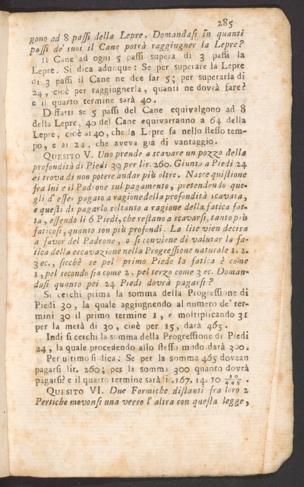 285
gono ad 8 passi della Lepre. Domandasi in quanti
passi de' suoi il Cane potrà raggiugner la Lepre?
Il Cane ad ogni 5 passi supera di 3 passi la
Lepre. Si dica adunque: Se per superare la Lepre
di 3 passi il Cane ne dee far 5; per superarla di
24, cioè per raggiugnerla, quanti ne dovrà fare?
e il quarto termine sarà 40.
Difatti se 5 passi del Cane equivalgono ad 8
della Lepre, 40 del Cane equivarranno a 64 della
Lepre, cioè a 40, che la Lepre fa nello stesso tem-
po, e ai 24, che aveva già di vantaggio.
QUESITO V. Uno prende a scavare un pozzo della
profondità di Piedi 30 per lir. 260. Giunto a Piedi 24
si trova di non potere andar più oltre. Nasce quistione
fra lui e il Padrone sul pagamento, pretendendo que-
gli d' esser pagato a ragione della profondità scavata,
e questi di pagarlo soltanto a ragione della fatica fat-
ta, essendo li 6 Piedi, che restano a scavarsi, tanto più
faticosi, quanto son più profondi. La lite vien decisa
a favor del Padrone, e si conviene di valutar la fa-
tica della escavazione nella Progressione naturale 1. 2.
3 ec., sicchè se pel primo Piede la fatica è come
1, pel secondo sia come 2. pel terzo come 3 ec. Doman-
dasi quanto pei 24 Piedi dovrà pagarsi?
Si cerchi prima la somma della Progressione di
Piedi 30, la quale aggiugnendo al numero de' ter-
mini 30 il primo termine 1, e moltiplicando 31
per la metà di 30, cioè per 15, darà 465.
Indi si cerchi la somma della Progressione di Piedi
24, la quale procedendo allo stesso modo darà 300.
Per ultimo si dica: Se per la somma 465 dovean
pagarsi lir. 260; per la somma 300 quanto dovrà
pagarsi? e il quarto termine sarà li. 167. 14. 10
QUESITO VI. Due Formiche distanti fra loro 2
Pertiche movonsi una verso l' altra con questa legge,